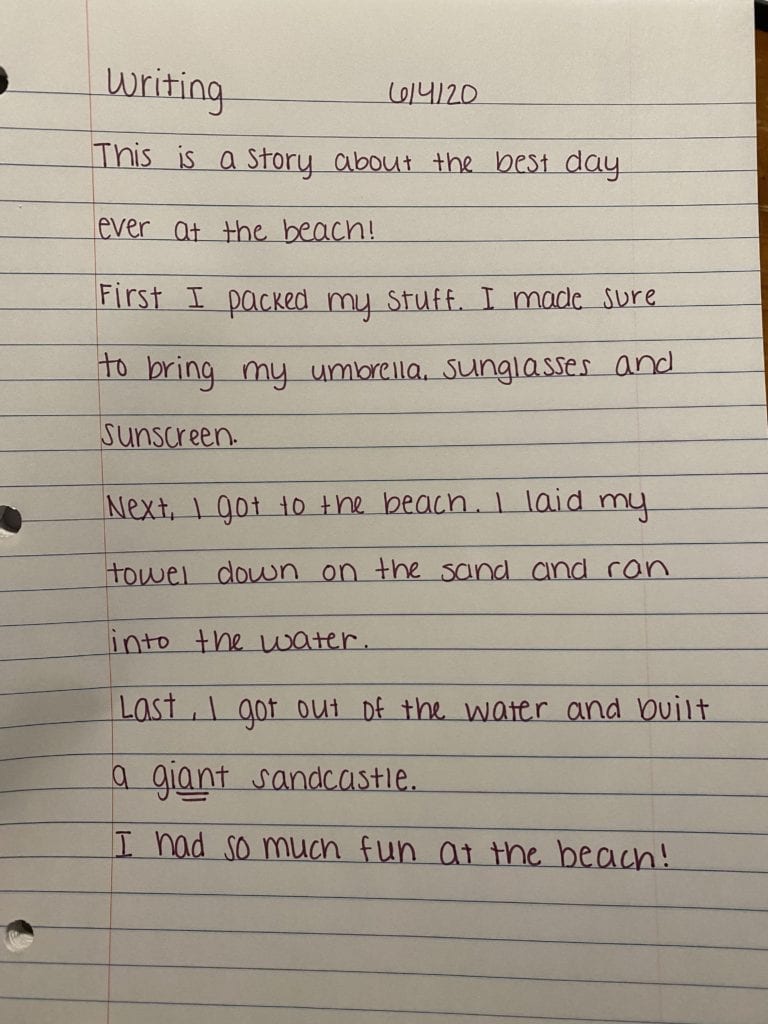 Writing 6/4/20
This is a story about the best day
ever at the beach!
First I packed my stuff. I made sure
to bring my umbrella, sunglasses and
sunscreen.
Next, I got to the beach. I laid my
towel down on the sand and ran
into the water.
Last, I got out of the water and built
a giant sandcastle.
I had so much fun at the beach!